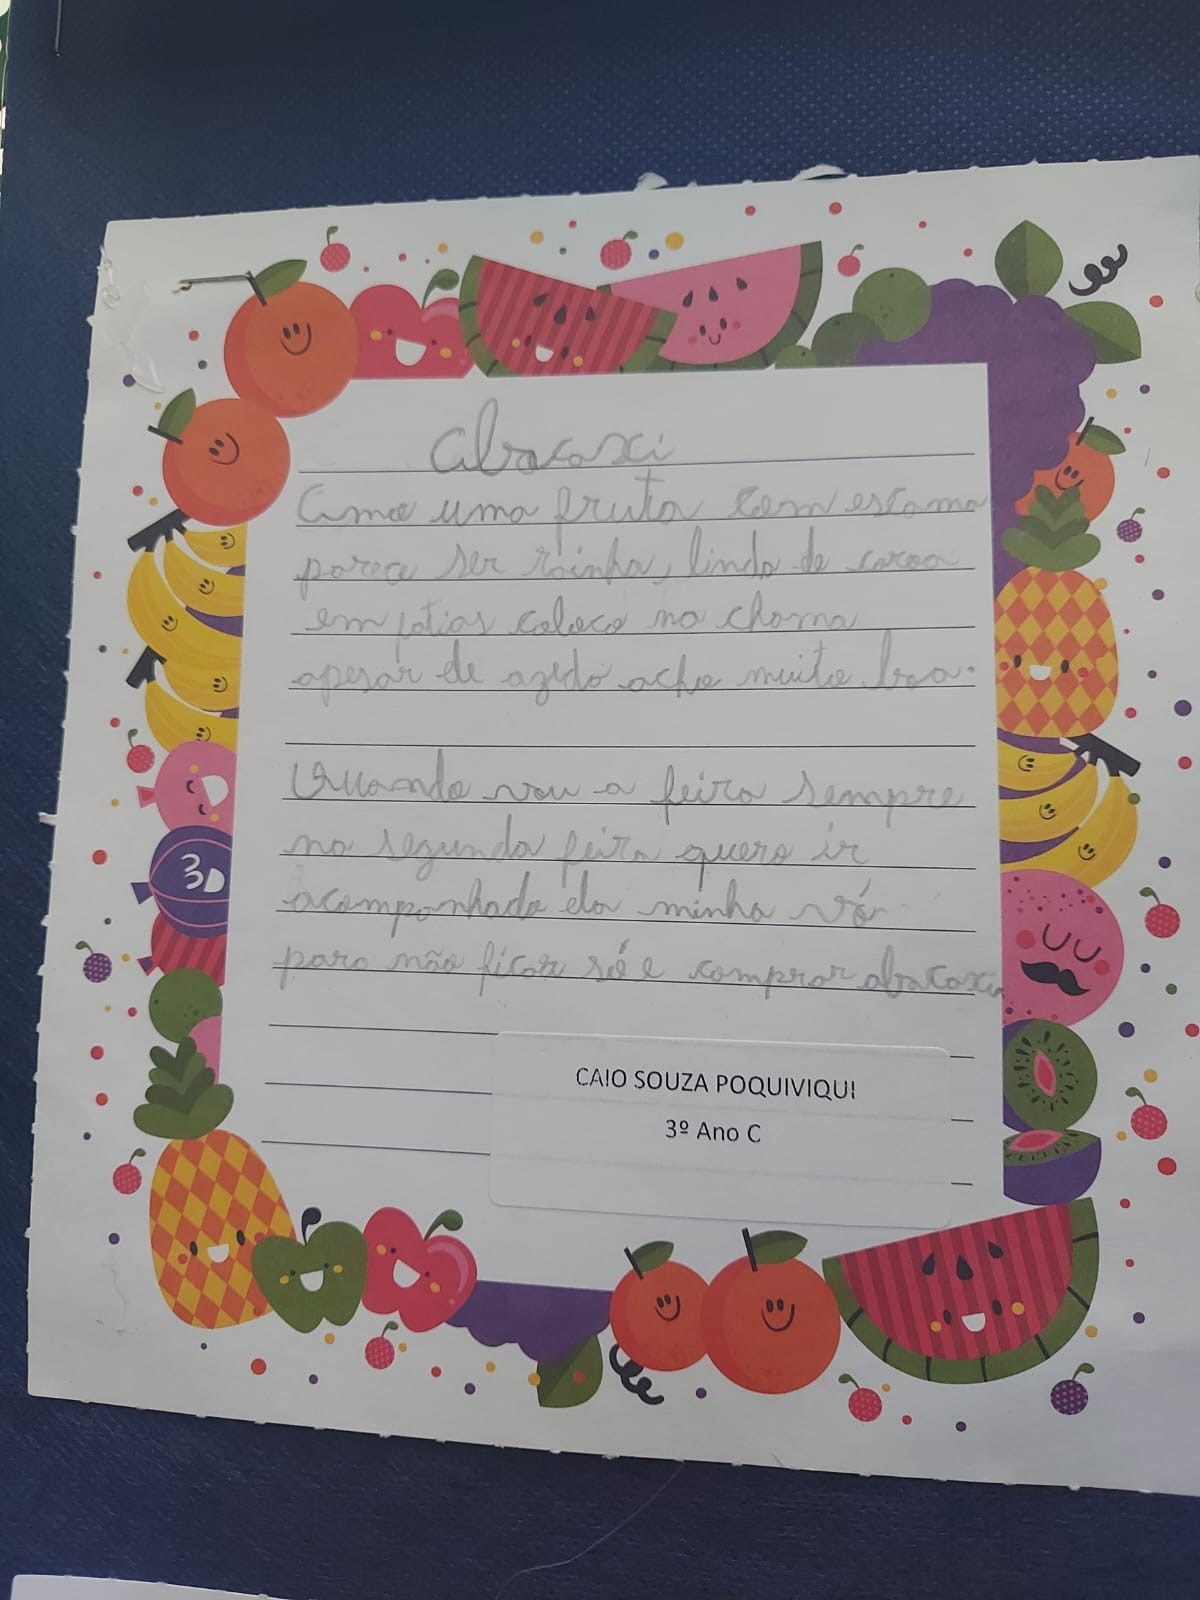 Abacaxi
Amo uma fruta com escama
parece ser rainha, linda de coroa
em fatias coloco na chama
apesar de azedo acho muito boa.
Quando vou a feira sempre
na segunda feira quero ir
acompanhado da minha vó
para não ficar só e comprar abacaxi
CAIO SOUZA POQUIVIQUI
3º Ano C